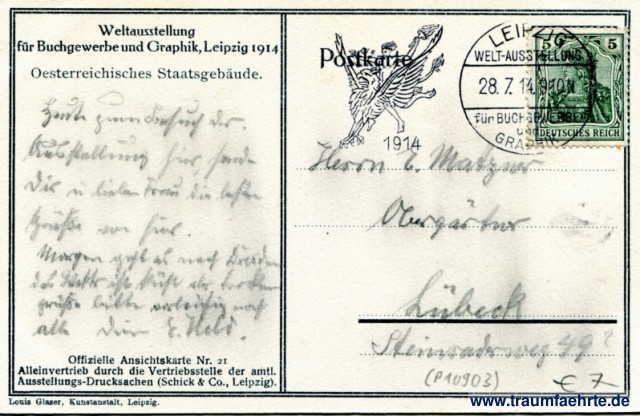 Weltausstellung
für Buchgewerbe und Graphik, Leipzig 1914
Oesterreichisches Staatsgebäude.
Heute zum Besuch der
Ausstellung hier sende
Dir u lieben Frau die besten
Grüße von hier.
Morgen geht es nach Dresden
das Wetter ist kühl aber trocken
grüße bitte vorläufig noch
alle Dein E. Held.
Offizielle Ansichtskarte Nr. 21
Alleinvertrieb durch die Vertriebsstelle der amtl.
Ausstellungs-Drucksachen (Schick & Co., Leipzig).
Louis Glaser, Kunstanstalt, Leipzig.
Postkarte
1914
LEIPZIG
WELT-AUSSTELLUNG
28.7.14.9-10N
für BUCHGEWERBE
und
GRAPHIK
5 5
DEUTSCHES REICH
Herrn E. Matzner
Obergärtner
Lübeck
Steinraderweg 49a
(P10903)
€ 7
www.traumfaehrte.de